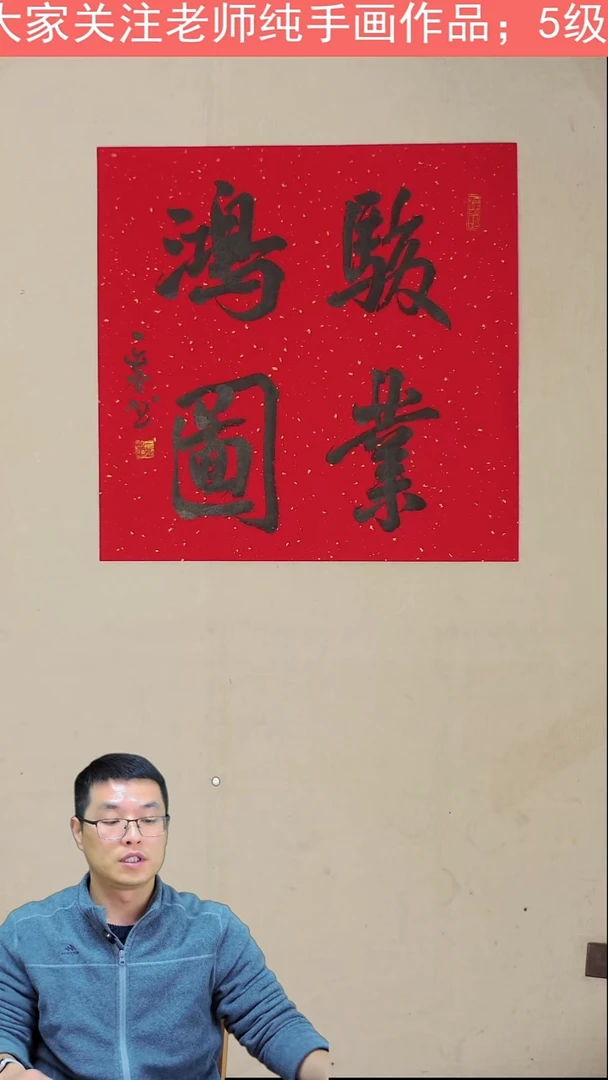 大家关注老师纯手画作品；5级
駿業
鴻圖